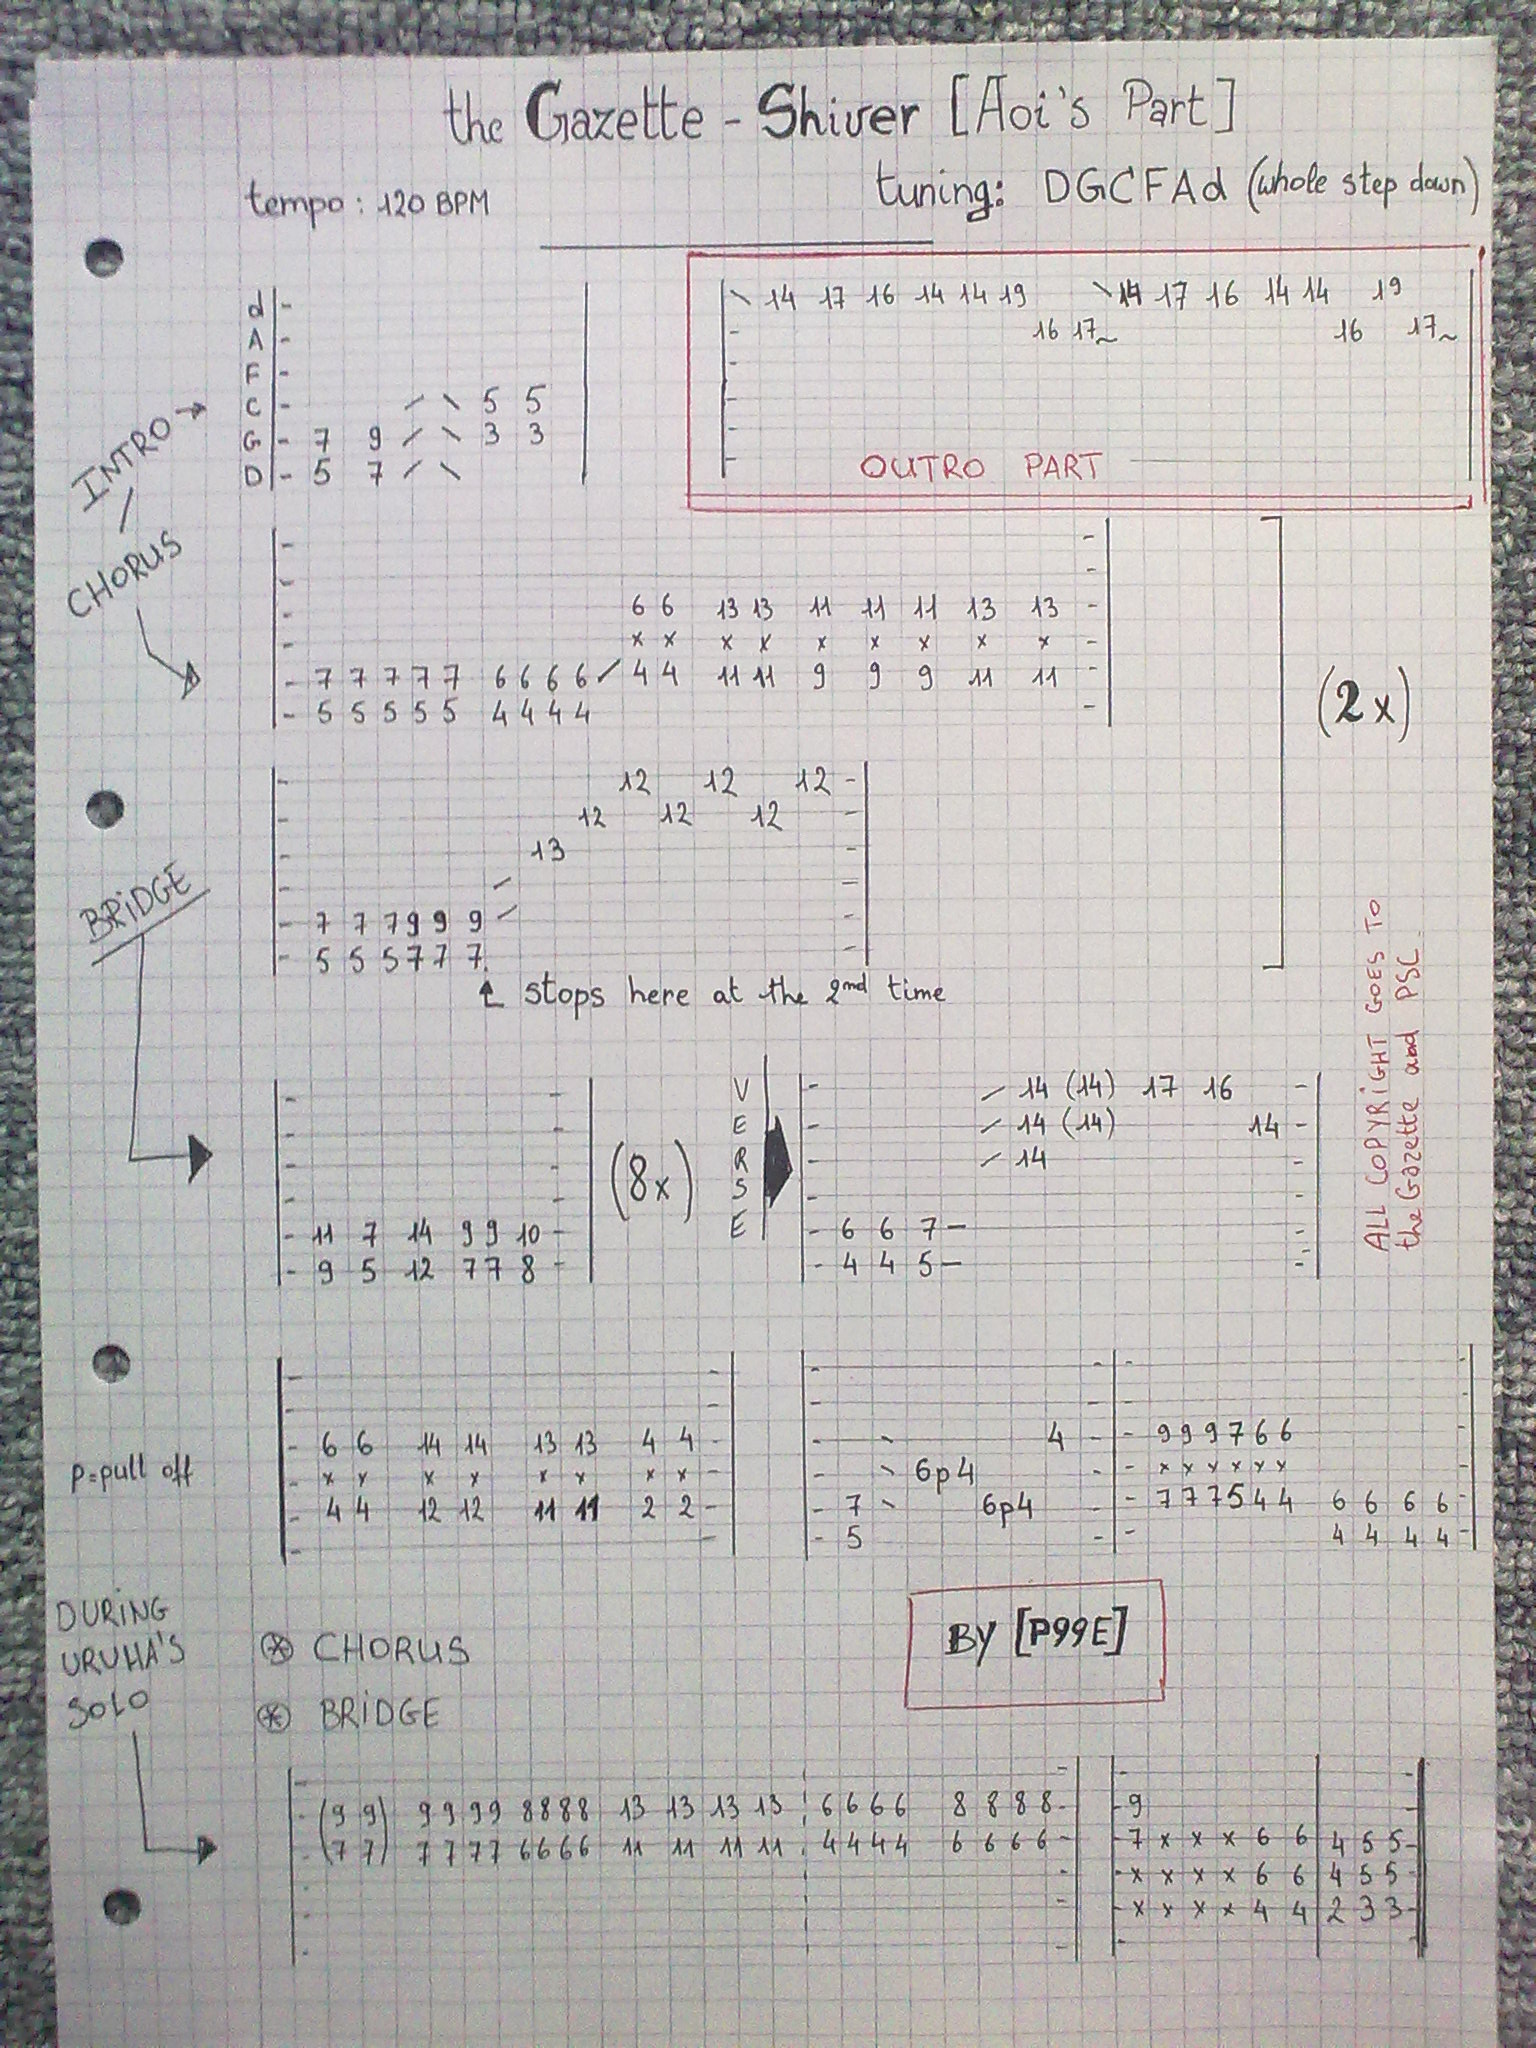 the Gazette - Shiver [Aoi's Part]
tempo : 120 BPM
tuning: DGCFAd (whole step down)
INTRO
CHORUS
d -
A -
F -
C - / \ 5 5
G - 7 9 / \ 3 3
D - 5 7 / \
\ 14 17 16 14 14 19 \ 14 17 16 14 14 19
- 16 17~ 16 17~
-
-
-
-
OUTRO PART
- -
- -
6 6 13 13 11 11 11 13 13 -
x x x x x x x x x -
- 7 7 7 7 7 6 6 6 6 / 4 4 11 11 9 9 9 11 11 -
- 5 5 5 5 5 4 4 4 4 -
(2x)
- 12 12 12 -
- 12 12 12 -
- 13 -
- / -
- 7 7 7 9 9 9 / -
- 5 5 5 7 7 7 -
stops here at the 2nd time
BRIDGE
- -
- -
- -
- -
- 11 7 14 9 9 10 -
- 9 5 12 7 7 8 -
(8x)
VERSE
- / 14 (14) 17 16 -
- / 14 (14) 14 -
- / 14 -
- -
- 6 6 7 - -
- 4 4 5 - -
ALL COPYRIGHT GOES TO
the Gazette and PSC
p=pull off
- -
- -
- 6 6 14 14 13 13 4 4 -
- x x x x x x x x -
- 4 4 12 12 11 11 2 2 -
- -
- - - -
- -
- \ 4 - - 9 9 9 7 6 6 -
- \ 6p4 - - x x x x x x -
- 7 \ 6p4 - - 7 7 7 5 4 4 6 6 6 6 -
- 5 - - 4 4 4 4 -
BY [P99E]
⊛ CHORUS
⊛ BRIDGE
DURING
URUHA'S
SOLO
- -
- (9 9) 9 9 9 9 8 8 8 8 13 13 13 13 6 6 6 6 8 8 8 8 -
- (7 7) 7 7 7 7 6 6 6 6 11 11 11 11 4 4 4 4 6 6 6 6 -
- -
- -
- -
- -
- 9 -
- 7 x x x 6 6 4 5 5 -
- x x x x 6 6 4 5 5 -
- x x x x 4 4 2 3 3 -
- -